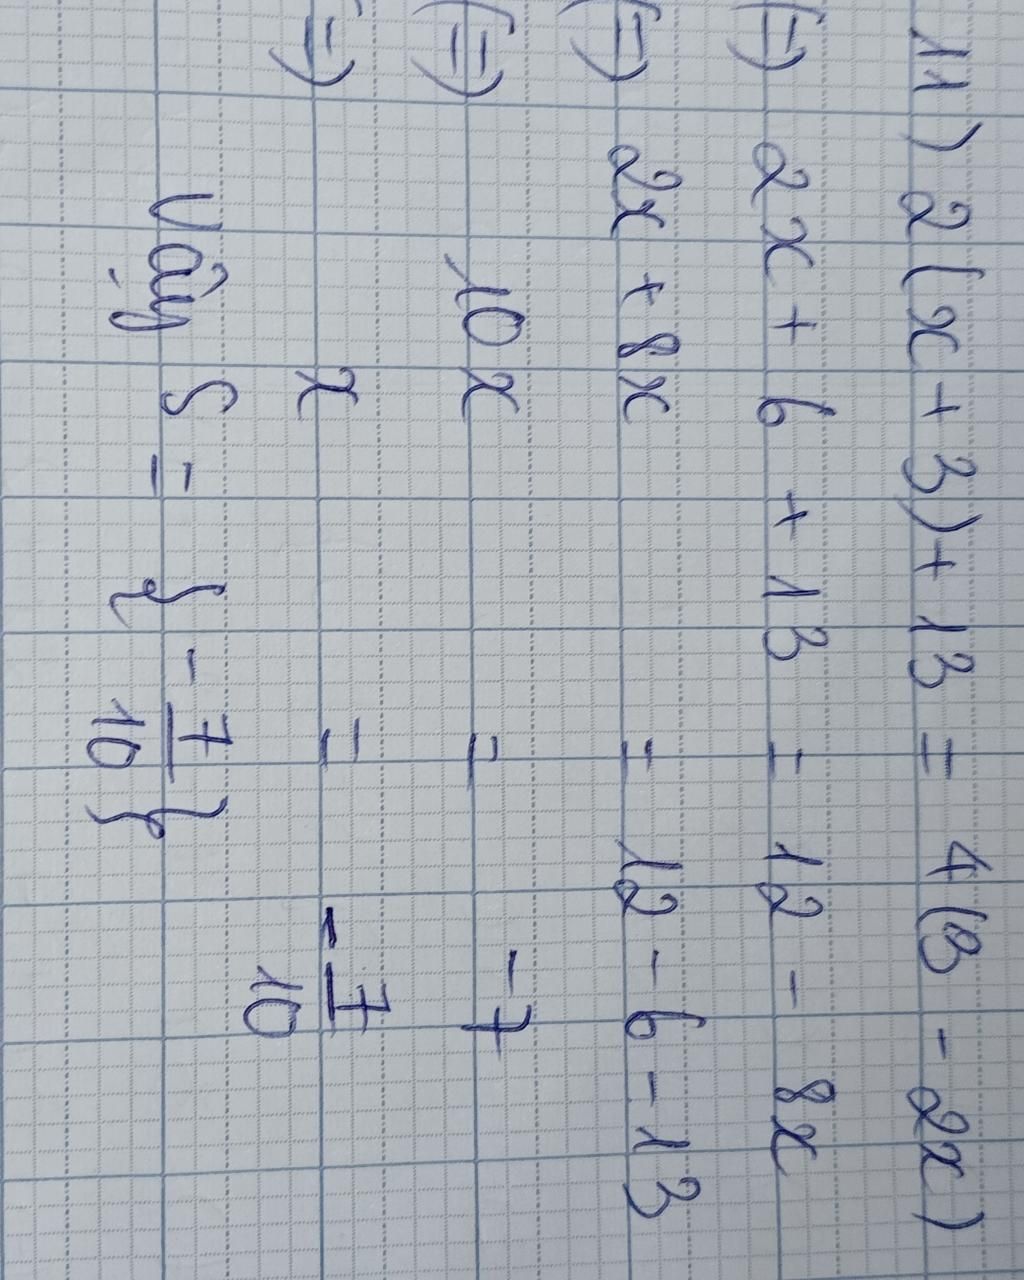 11) 2(x+3)+13 = 4(3 - 2x)
(=) 2x + 6 + 13 = 12 - 8x
(=) 2x + 8x = 12 - 6 - 13
(=) 10x = -7
(=) x = -7/10
Vậy S = {-7/10}